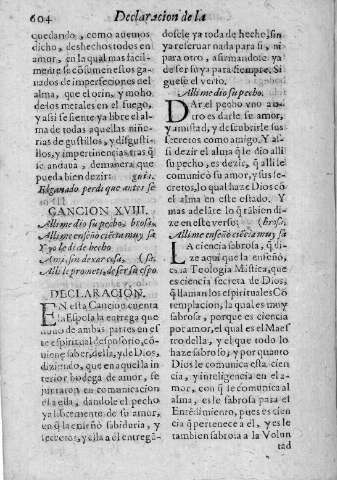 604 Declaracion de la
quedando, como auemos
dicho, deshechos todos en
amor, en la qual mas facil-
mente se cõsumen estos ga-
nados de imperfecciones nel
alma, que el orin, y moho
de los metales en el fuego,
y assi se siente ya libre el al-
ma de todas aquellas niñe-
rias de gustillos, y disgusti-
llos, y impertinencias tras q̃
se andaua, demanera que
pueda bien dezir:
ganado perdi que antes se
CANCION XVIII.
Alli me dio su pecho,
Alli me enseño ciẽcia muy sa
Y yo le di de hecho
A mi, sin dexar cosa,
Alli le prometi, de ser su espo
DECLARACION.
EN esta Canciõ cuenta
la Esposa la entrega que
huuo de ambas partes en es
te espiritual desposorio, cõ-
uiene saber, della, y de Dios,
diziendo, que en aquella in
terior bodega de amor, se
juntaron en comunicacion
el a ella, dandole el pecho
ya libremente de su amor,
en q̃ la enseñò sabiduria, y
secretos, y ella a el entregã-
dosele ya toda de hecho, sin
ya reseruar nada para si, ni
para otro, afirmandose ya
de ser suya para siempre. Si
guese el verso.
Alli me dio su pecho.
DAr el pecho vno a o-
tro es darle su amor,
y amistad, y descubrirle sus
secretos como amigo. Y as
si dezir el alma q̃ le diò alli
su pecho, es dezir, q̃ alli le
comunicò su amor, y sus se-
cretos, lo qual haze Dios cõ
el alma en este estado. Y
mas adelãte lo q̃ tãbien di-
ze en este verso: (brosa.
Alli me enseñò ciẽcia muy sa
LA ciencia sabrosa, q̃ di-
ze aqui que la enseñò,
es la Teologia Mistica, que
es ciencia secreta de Dios,
q̃ llaman los espirituales Cõ
templacion, la qual es muy
sabrosa, porque es ciencia
por amor, el qual es el Maes
tro della, y el que todo lo
haze sabroso; y por quanto
Dios le comunica esta cien
cia, y inteligencia en el a-
mor, con q̃ se comunica al
alma, es le sabrosa para el
Entẽdimiento, pues es cien
cia q̃ pertenece a el, y es le
tambien sabrosa a la Volun
tad